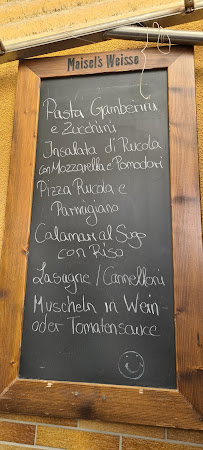 Meisel's Weisse
Pasta Gamberini
e Zucchini
Insalata di Rucola
con Mozzarella e Pomodori
Pizza Rucola e
Parmigiano
Calamari al Sugo
con Riso
Lasagne / Cannelloni
Muscheln in Wein-
oder Tomatensauce